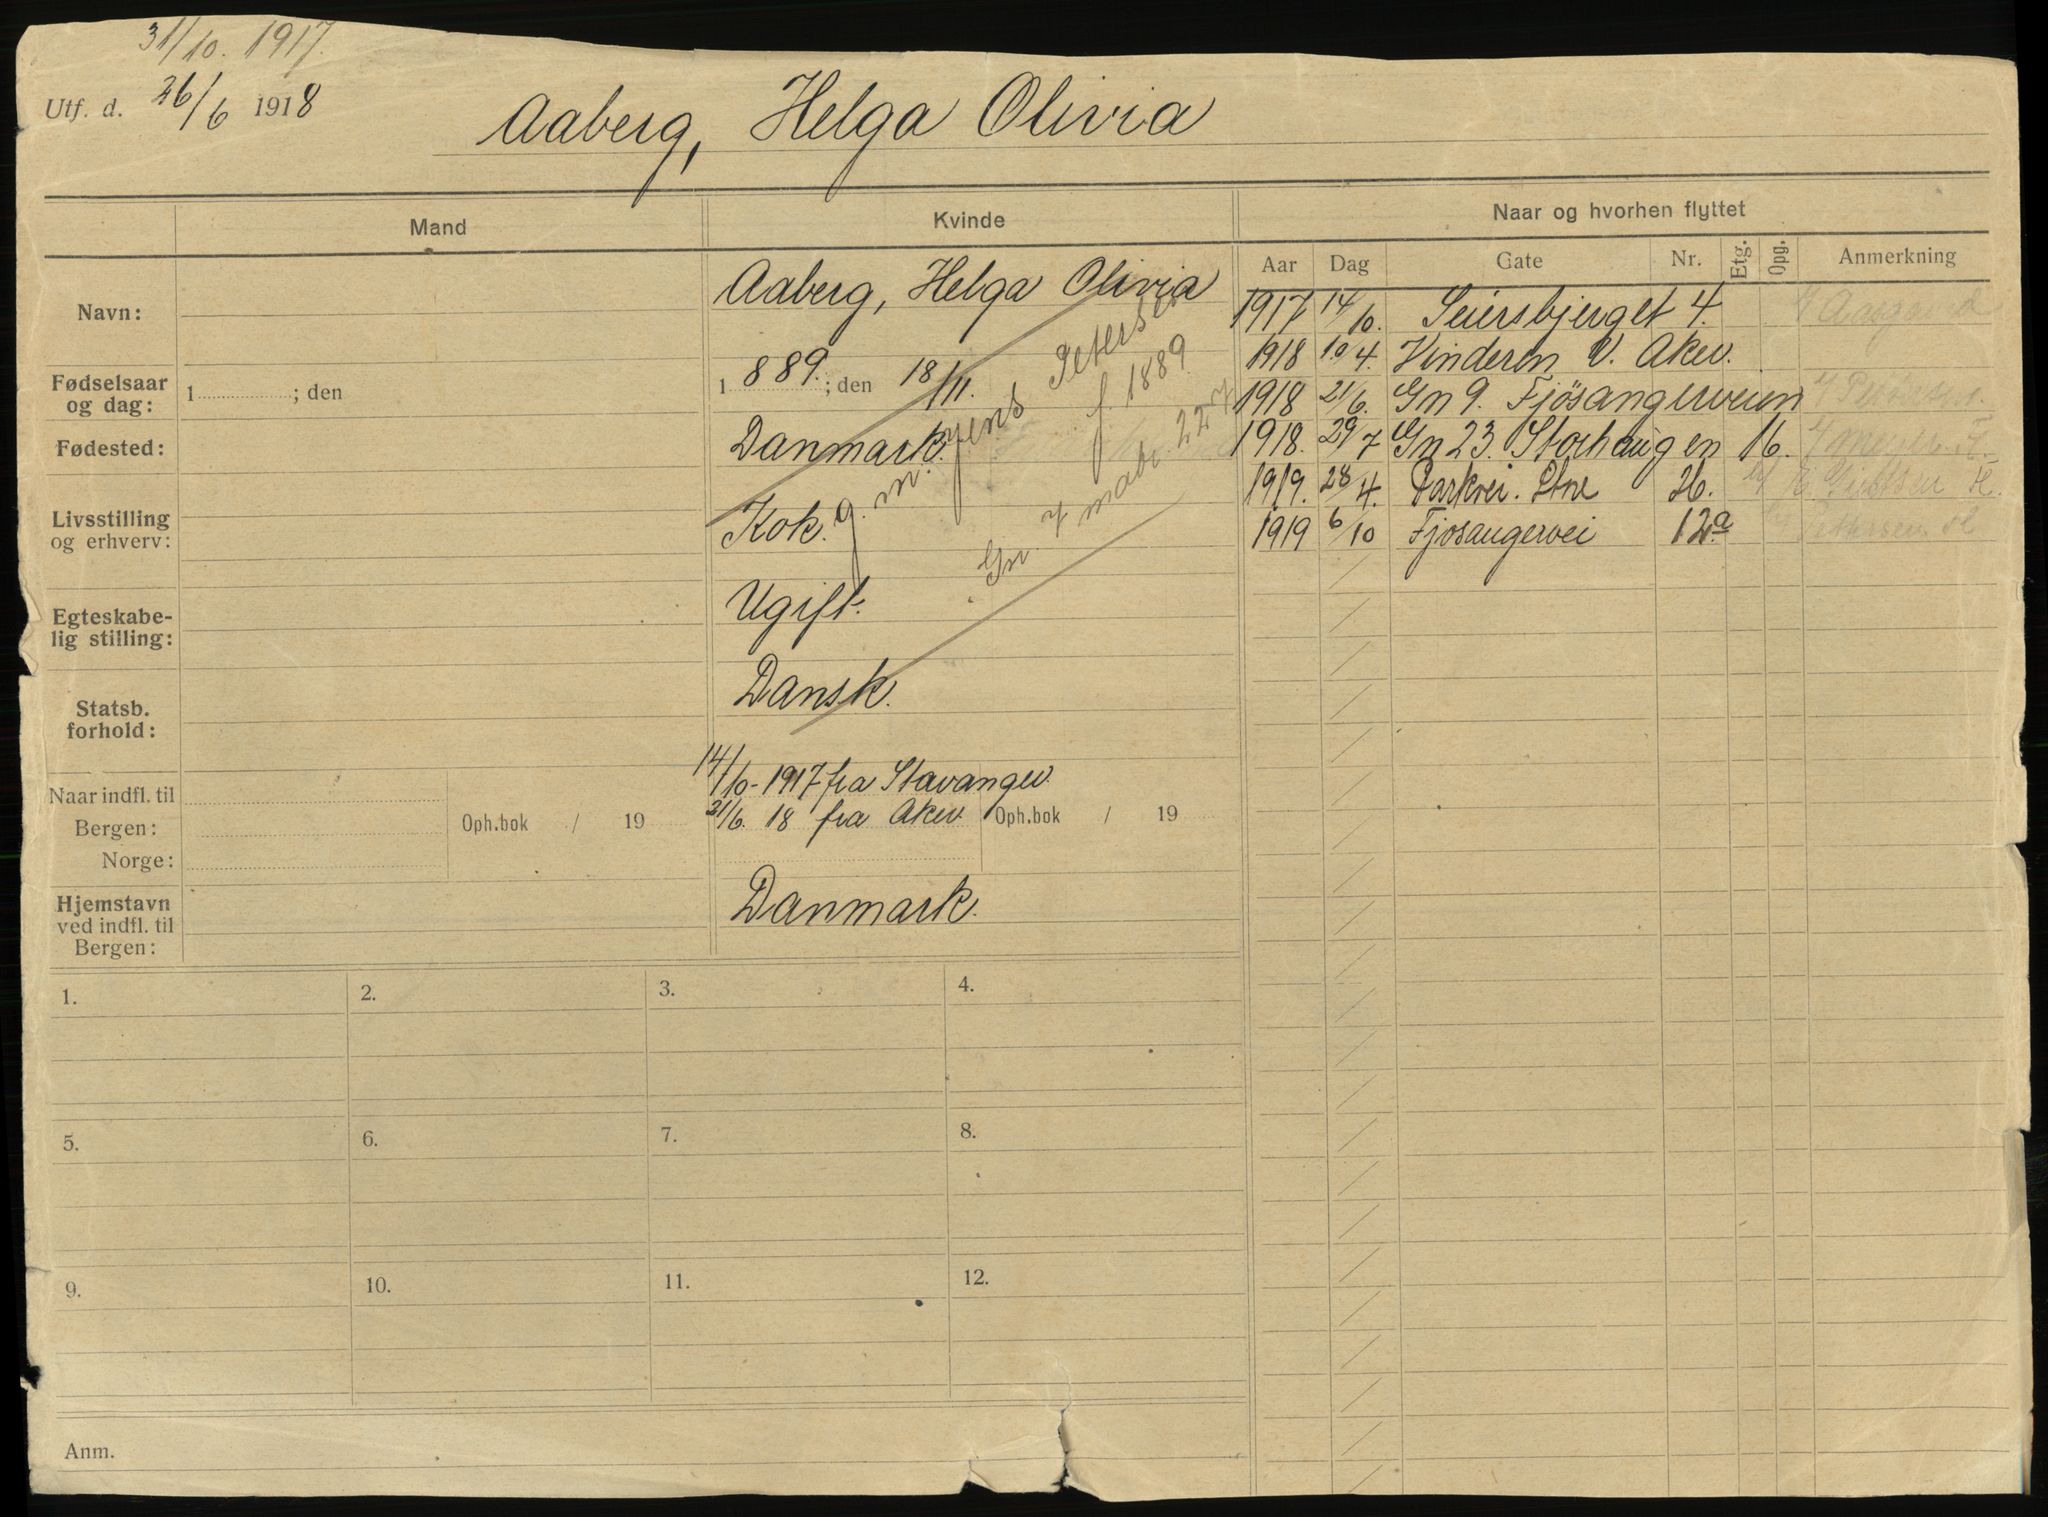 31/10. 1917.
Utf. d. 26/6 1918
Aaberg, Helga Olivia
Mand
Kvinde
Naar og hvorhen flyttet
Aar Dag Gate Nr. Etg. Opg. Anmerkning
Navn:
Aaberg, Helga Olivia
Fødselsaar og dag:
1 ; den
1889. ; den 18/11.
Fødested:
Danmark.
Livsstilling og erhverv:
Kok.
g. m. Jens Petersen
f. 1889
Egteskabelig stilling:
Ugift.
Statsb. forhold:
Dansk.
Naar indfl. til
Bergen:
Norge:
Oph.bok / 19
14/10-1917 fra Stavanger.
21/6. 18 fra Aker.
Oph.bok / 19
Hjemstavn ved indfl. til Bergen:
Danmark.
1917 14/10. Seiersbjerget 4.
1918 10/4. Vinderen V. Aker.
1918 21/6. Gn 9. Fjösangerveien
1918. 29/7 Gn 23. Storhaugen 16.
1919. 28/4. Parkvei. Store 26.
1919 6/10 Fjøsangervei 12a
1. 2. 3. 4.
5. 6. 7. 8.
9. 10. 11. 12.
Anm.